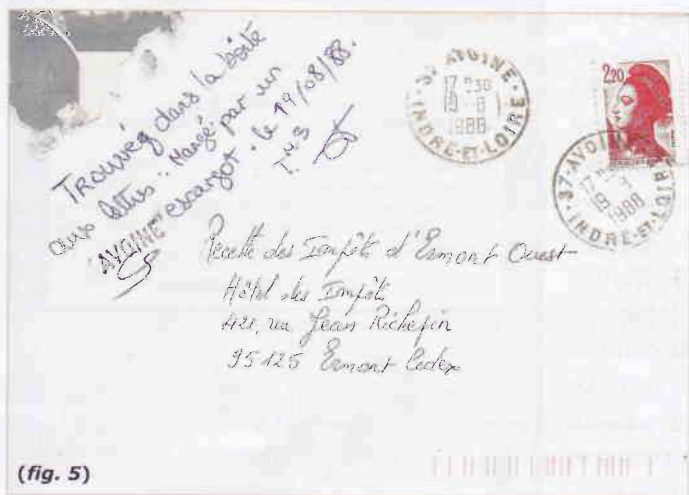 Trouvég dans la boîté
aux lettres. Mangé par un
escargot. le 19/08/88.
AVOINE
37 AVOINE
17 H30
19-8
1988
INDRE-ET-LOIRE
2,20
37-AVOINE
17 H30
19-8
1988
INDRE-ET-LOIRE
Recette des Impôts d'Ermont Ouest
Hôtel des Impôts
421, rue Jean Richepin
95125 Ermont Cedex
(fig. 5)